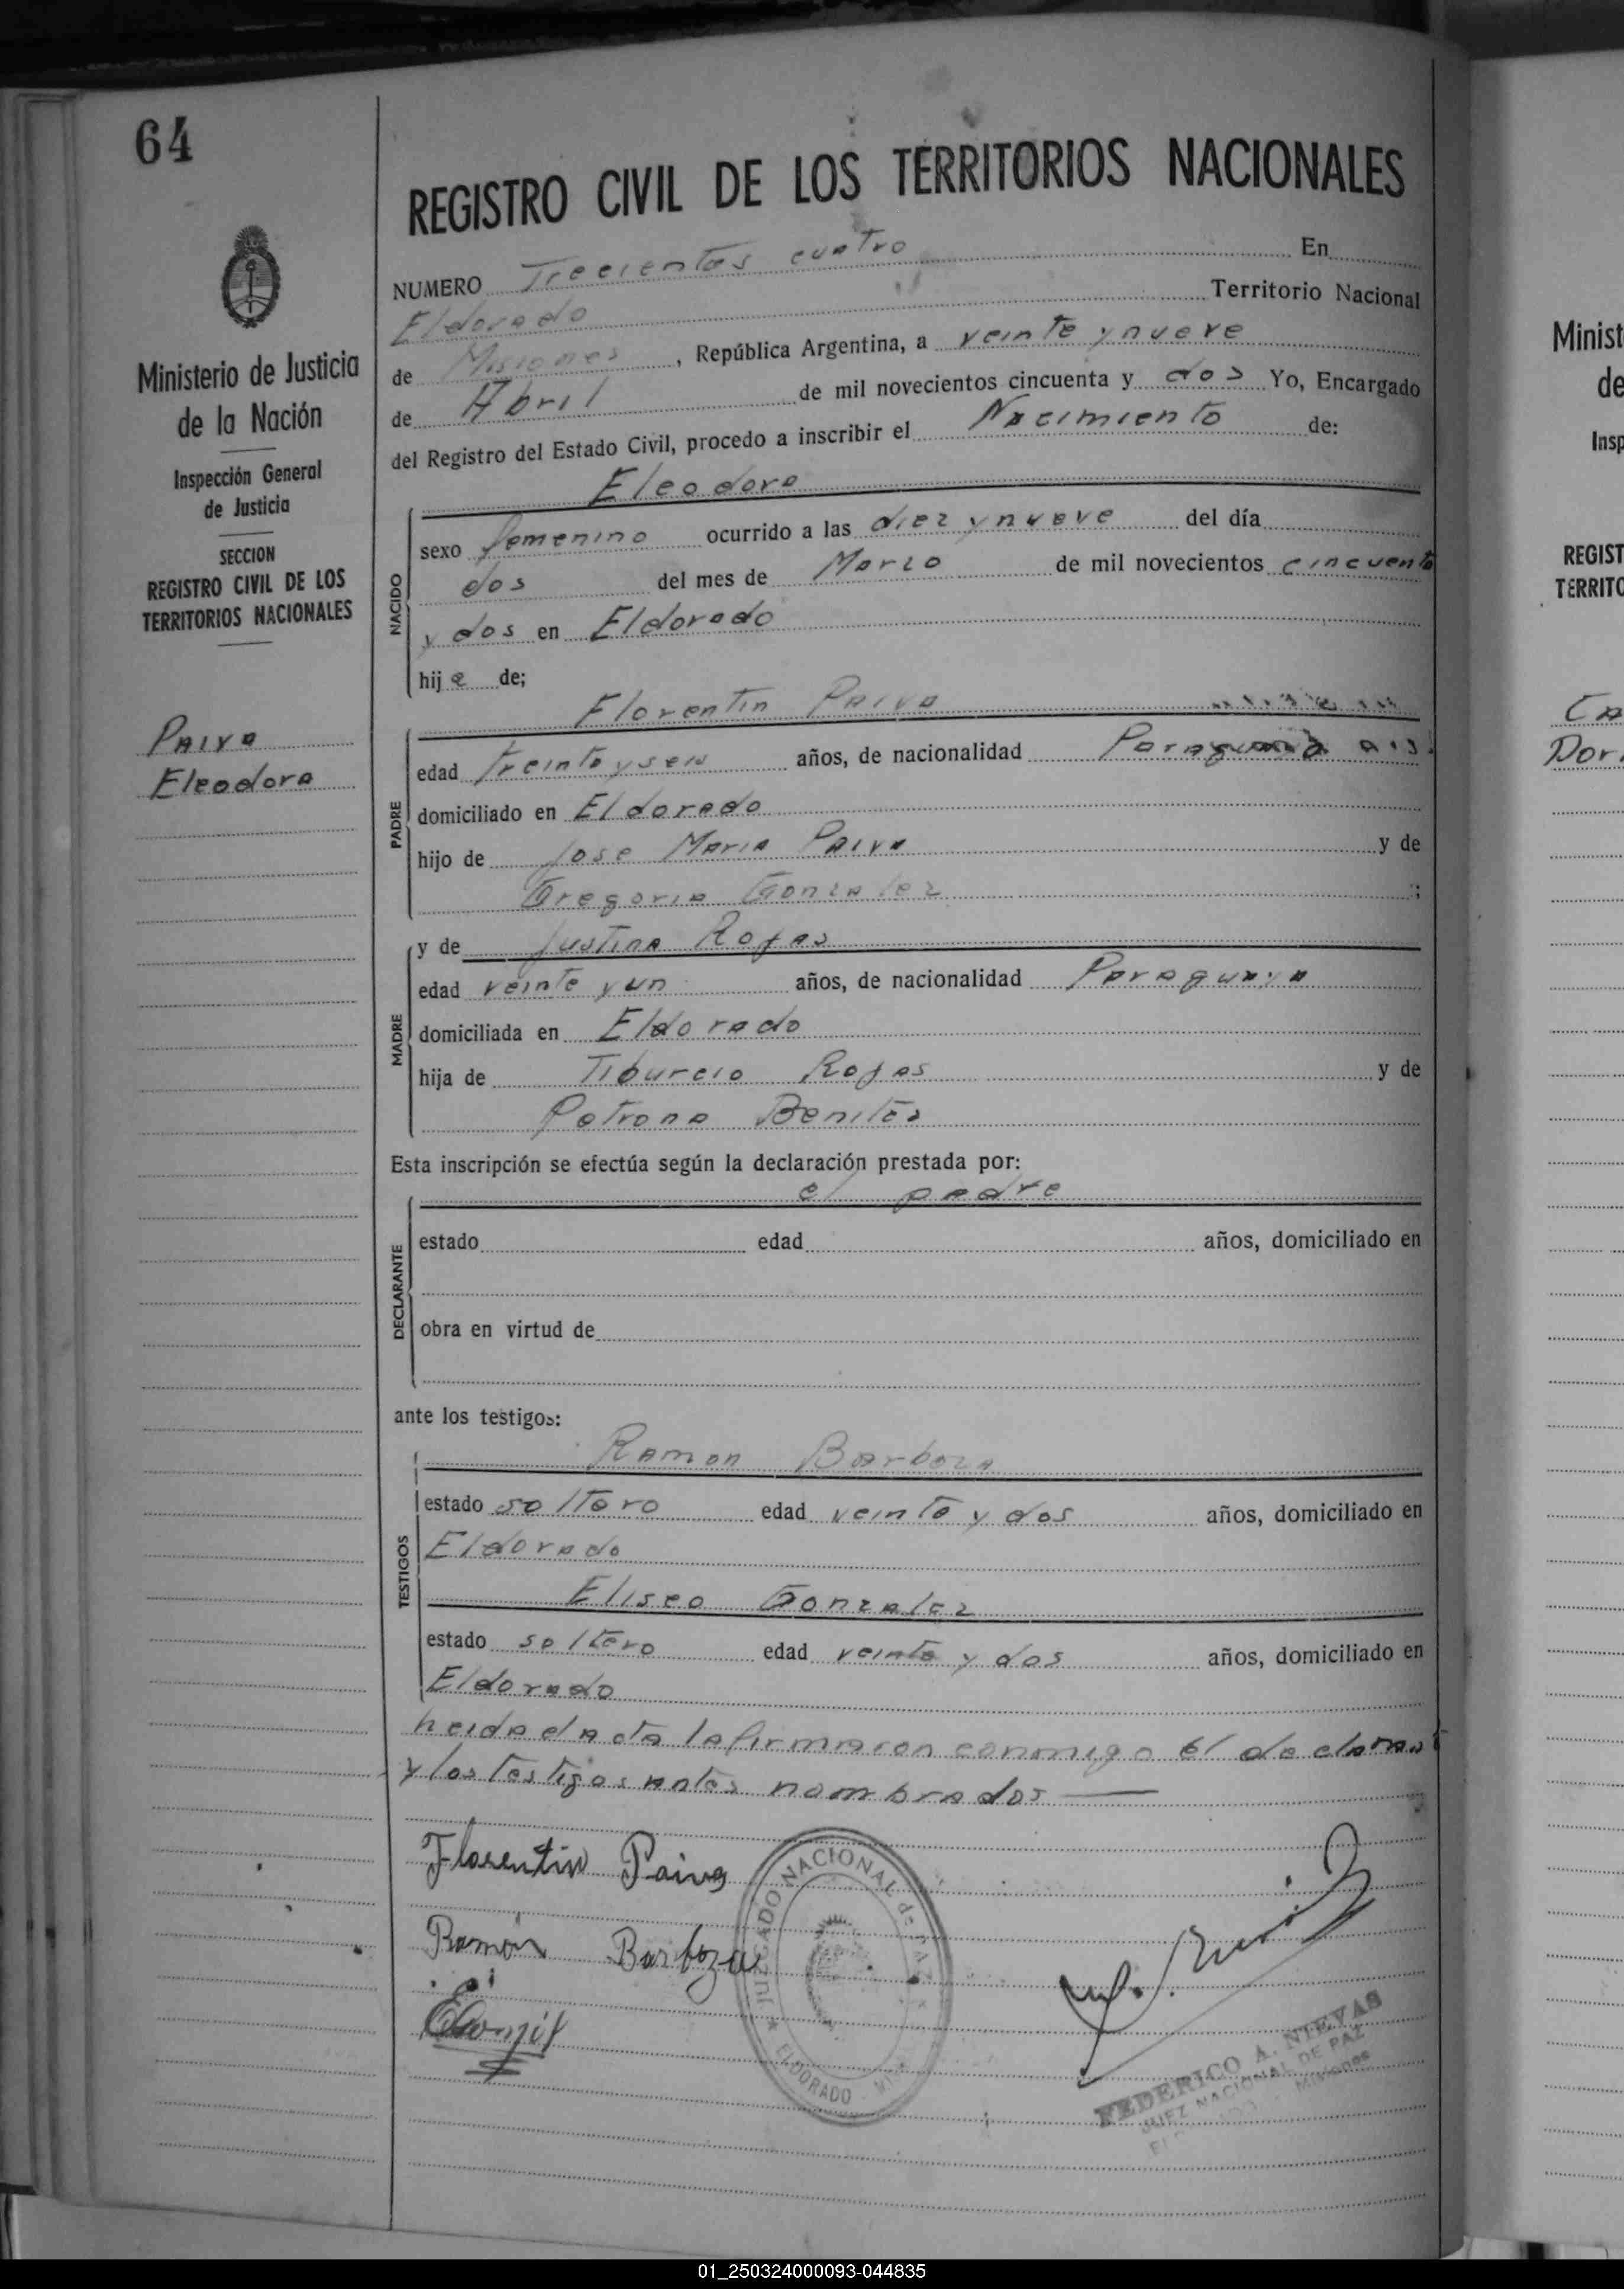 64
REGISTRO CIVIL DE LOS TERRITORIOS NACIONALES
NUMERO Trecientos cuatro En
Eldorado Territorio Nacional
de Misiones, República Argentina, a veinte y nueve
de Abril de mil novecientos cincuenta y dos Yo, Encargado
del Registro del Estado Civil, procedo a inscribir el Nacimiento de:
Eleodora
NACIDO
sexo femenino ocurrido a las diez y nueve del día
dos del mes de Marzo de mil novecientos cincuenta
y dos en Eldorado
hija de;
Florentin Paiva
PADRE
edad treinta y seis años, de nacionalidad
domiciliado en Eldorado
hijo de Jose Maria Paiva y de
Gregoria Gonzalez ;
MADRE
y de Justina Rojas
edad veinte y un años, de nacionalidad Paraguaya
domiciliada en Eldorado
hija de Tiburcio Rojas y de
Petrona Benitez
Esta inscripción se efectúa según la declaración prestada por:
el padre
DECLARANTE
estado edad años, domiciliado en
obra en virtud de
ante los testigos:
Ramon Barboza
TESTIGOS
estado soltero edad veinte y dos años, domiciliado en
Eldorado
Eliseo Gonzalez
estado soltero edad veinte y dos años, domiciliado en
Eldorado
la firmaron conmigo el
y los testigos antes nombrados
Florentin Paiva
Ramón Barboza
JUZGADO NACIONAL de PAZ
ELDORADO
FEDERICO A. NIEVAS
JUEZ NACIONAL DE PAZ
Misiones
Ministerio de Justicia
de la Nación
Inspección General
de Justicia
SECCION
REGISTRO CIVIL DE LOS
TERRITORIOS NACIONALES
Paiva
Eleodora
Minist
de
Insp
REGIST
TERRITO
Ca
Dor
01_250324000093-044835